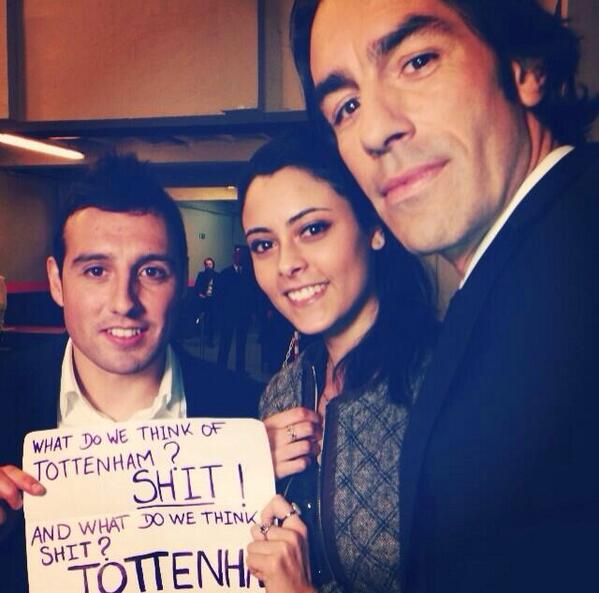 WHAT DO WE THINK OF
TOTTENHAM?
SHIT!
AND WHAT DO WE THINK
SHIT?
TOTTENHA